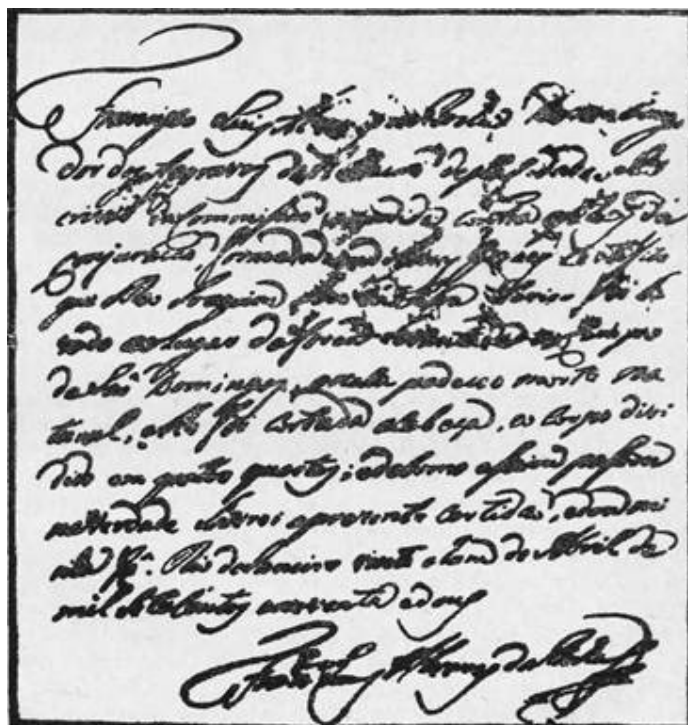 Francisco Luiz Alvares da Rocha Dezembarga
dor dos Aggravos da Relaçaõ desta Cidade, e Es
crivaõ da Commissaõ expedida contra os Reos da
conjuraçaõ formada em Minas Geraes. Certifico
que o Reo Joaquim Jozé da Silva Xavier foi le
vado ao lugar da forca levantada no Campo
de Saõ Domingos, e nella padeceo morte na
tural, e lhe foi cortada a cabeça, e o corpo divi
dido em quatro quartos; e de como assim passou
na verdade lavrei a prezente certidaõ, e dou mi
nha fé. Rio de Janeiro vinte e hum de Abril de
mil setecentos e noventa e dous
Fran.co Luiz Alvares da Rocha